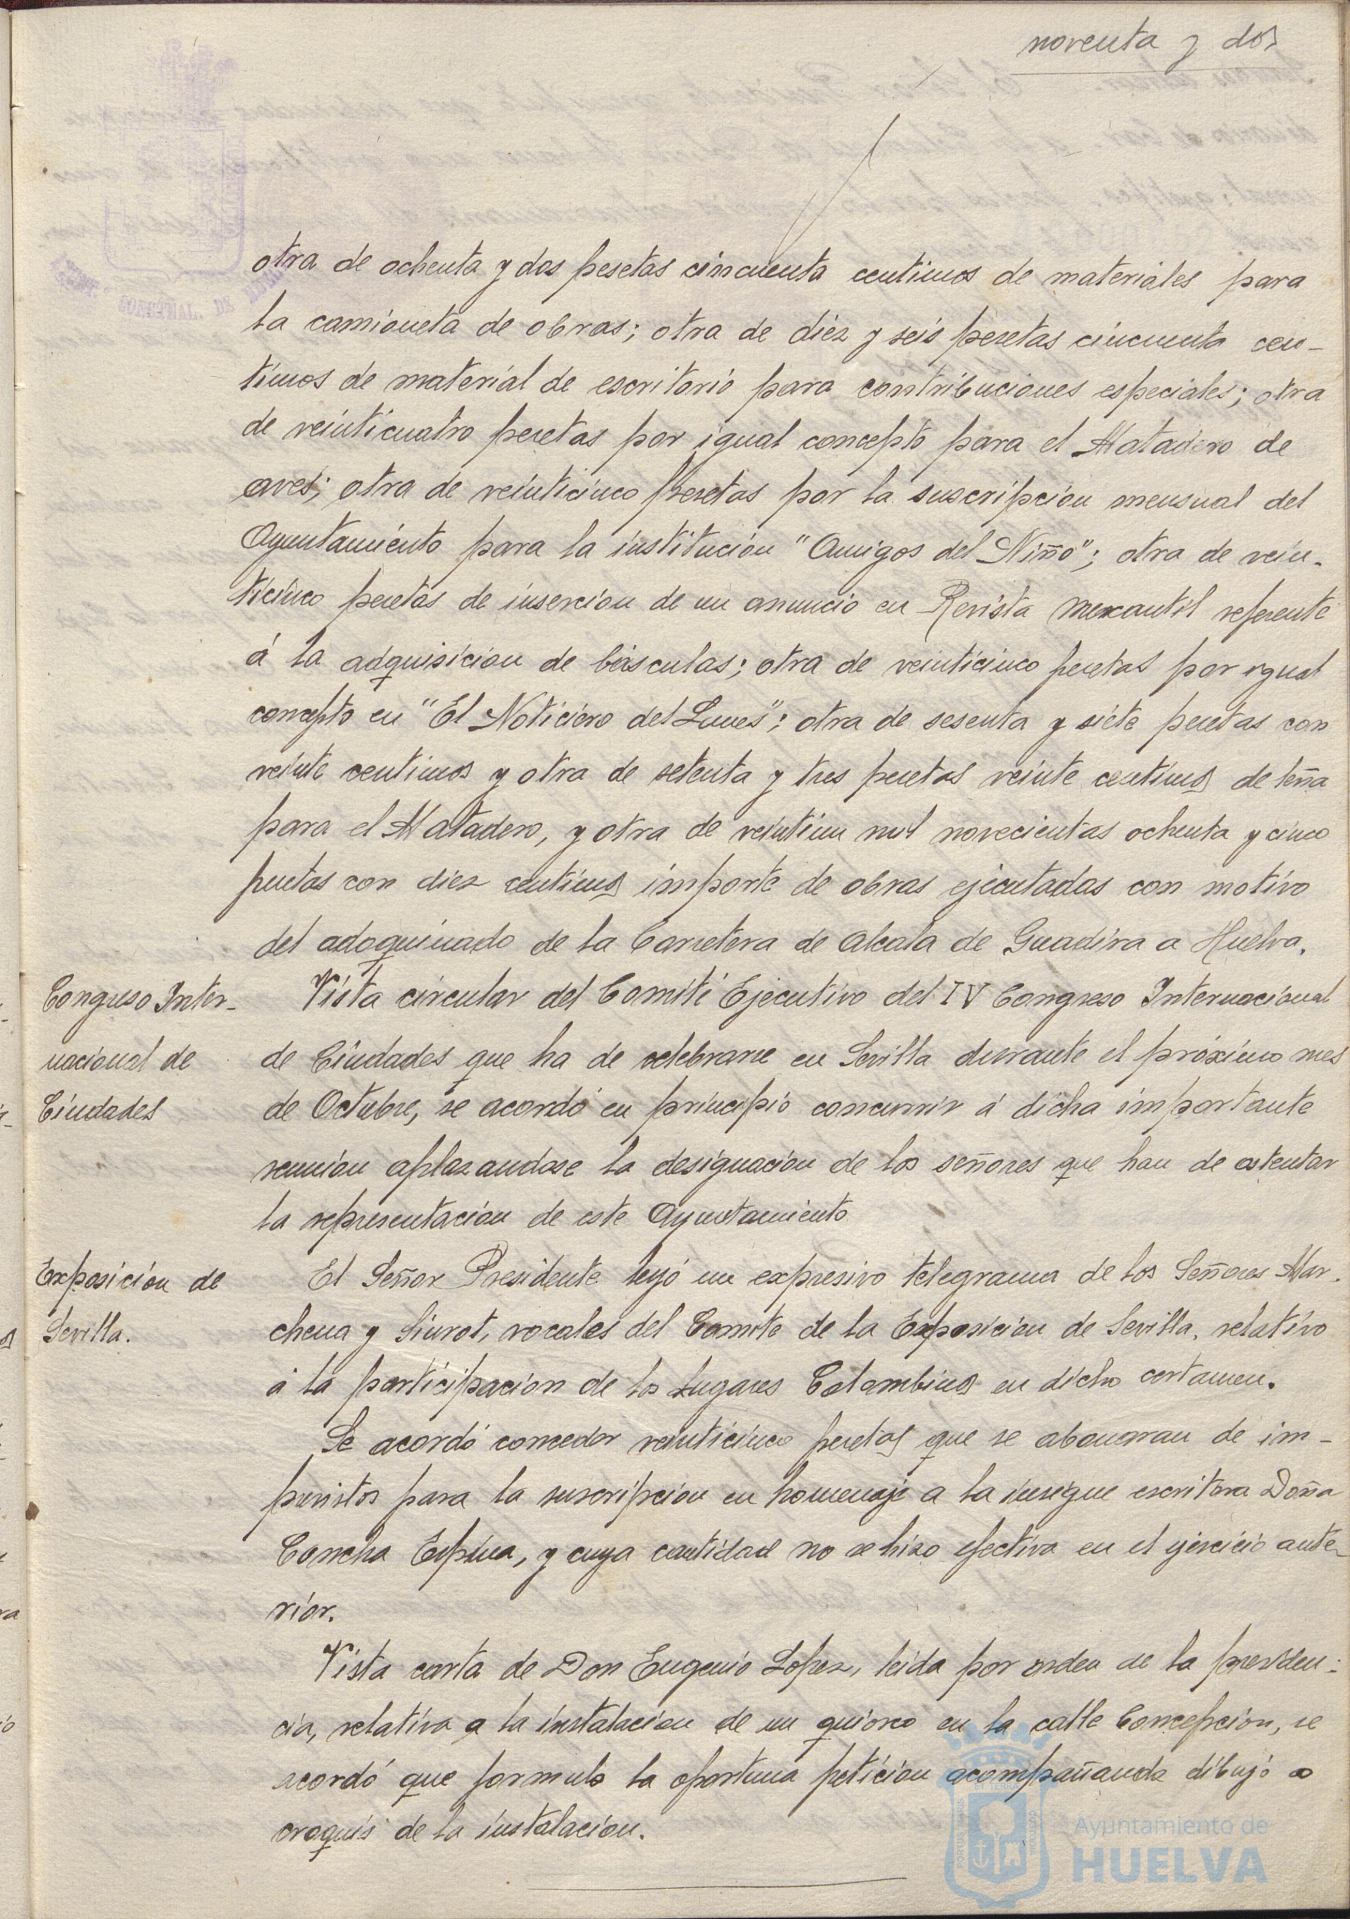 noventa y dos
otra de ochenta y dos pesetas cincuenta centimos de materiales para
la camioneta de obras; otra de diez y seis pesetas cincuenta cen-
timos de material de escritorio para contribuciones especiales; otra
de veinticuatro pesetas por igual concepto para el Matadero de
aves; otra de veinticinco pesetas por la suscripción mensual del
Ayuntamiento para la institución "Amigos del Niño"; otra de vein-
ticinco pesetas de insercion de un anuncio en Revista Mercantil referente
á la adquisicion de básculas; otra de veinticinco pesetas por igual
concepto en "El Noticiero del Lunes"; otra de sesenta y siete pesetas con
veinte centimos y otra de setenta y tres pesetas veinte centimos de leña
para el Matadero, y otra de veintiun mil novecientas ochenta y cinco
pesetas con diez centimos importe de obras ejecutadas con motivo
del adoquinado de la Carretera de Alcala de Guadira a Huelva.
Congreso Inter-
nacional de
Ciudades
Vista circular del Comité Ejecutivo del IV Congreso Internacional
de Ciudades que ha de celebrarse en Sevilla durante el próximo mes
de Octubre, se acordó en principio concurrir á dicha importante
reunion aplazandose la designacion de los señores que han de ostentar
la representacion de este Ayuntamiento
Exposición de
Sevilla.
El Señor Presidente leyó un expresivo telegrama de los Señores Mar-
chena y Siurot, vocales del Comite de la Exposicion de Sevilla, relativo
á la participacion de los Lugares Colombinos en dicho certamen.
Se acordó conceder veinticinco pesetas que se abonaran de im-
previstos para la suscripcion en homenaje a la insigne escritora Doña
Concha Espina, y cuya cantidad no se hizo efectiva en el ejercicio ante-
rior.
Vista carta de Don Eugenio Lopez, leida por orden de la presiden-
cia, relativa a la instalacion de un quiosco en la calle Concepcion, se
acordó que formule la oportuna petición acompañando dibujo o
croquis de la instalacion.
Ayuntamiento de
HUELVA